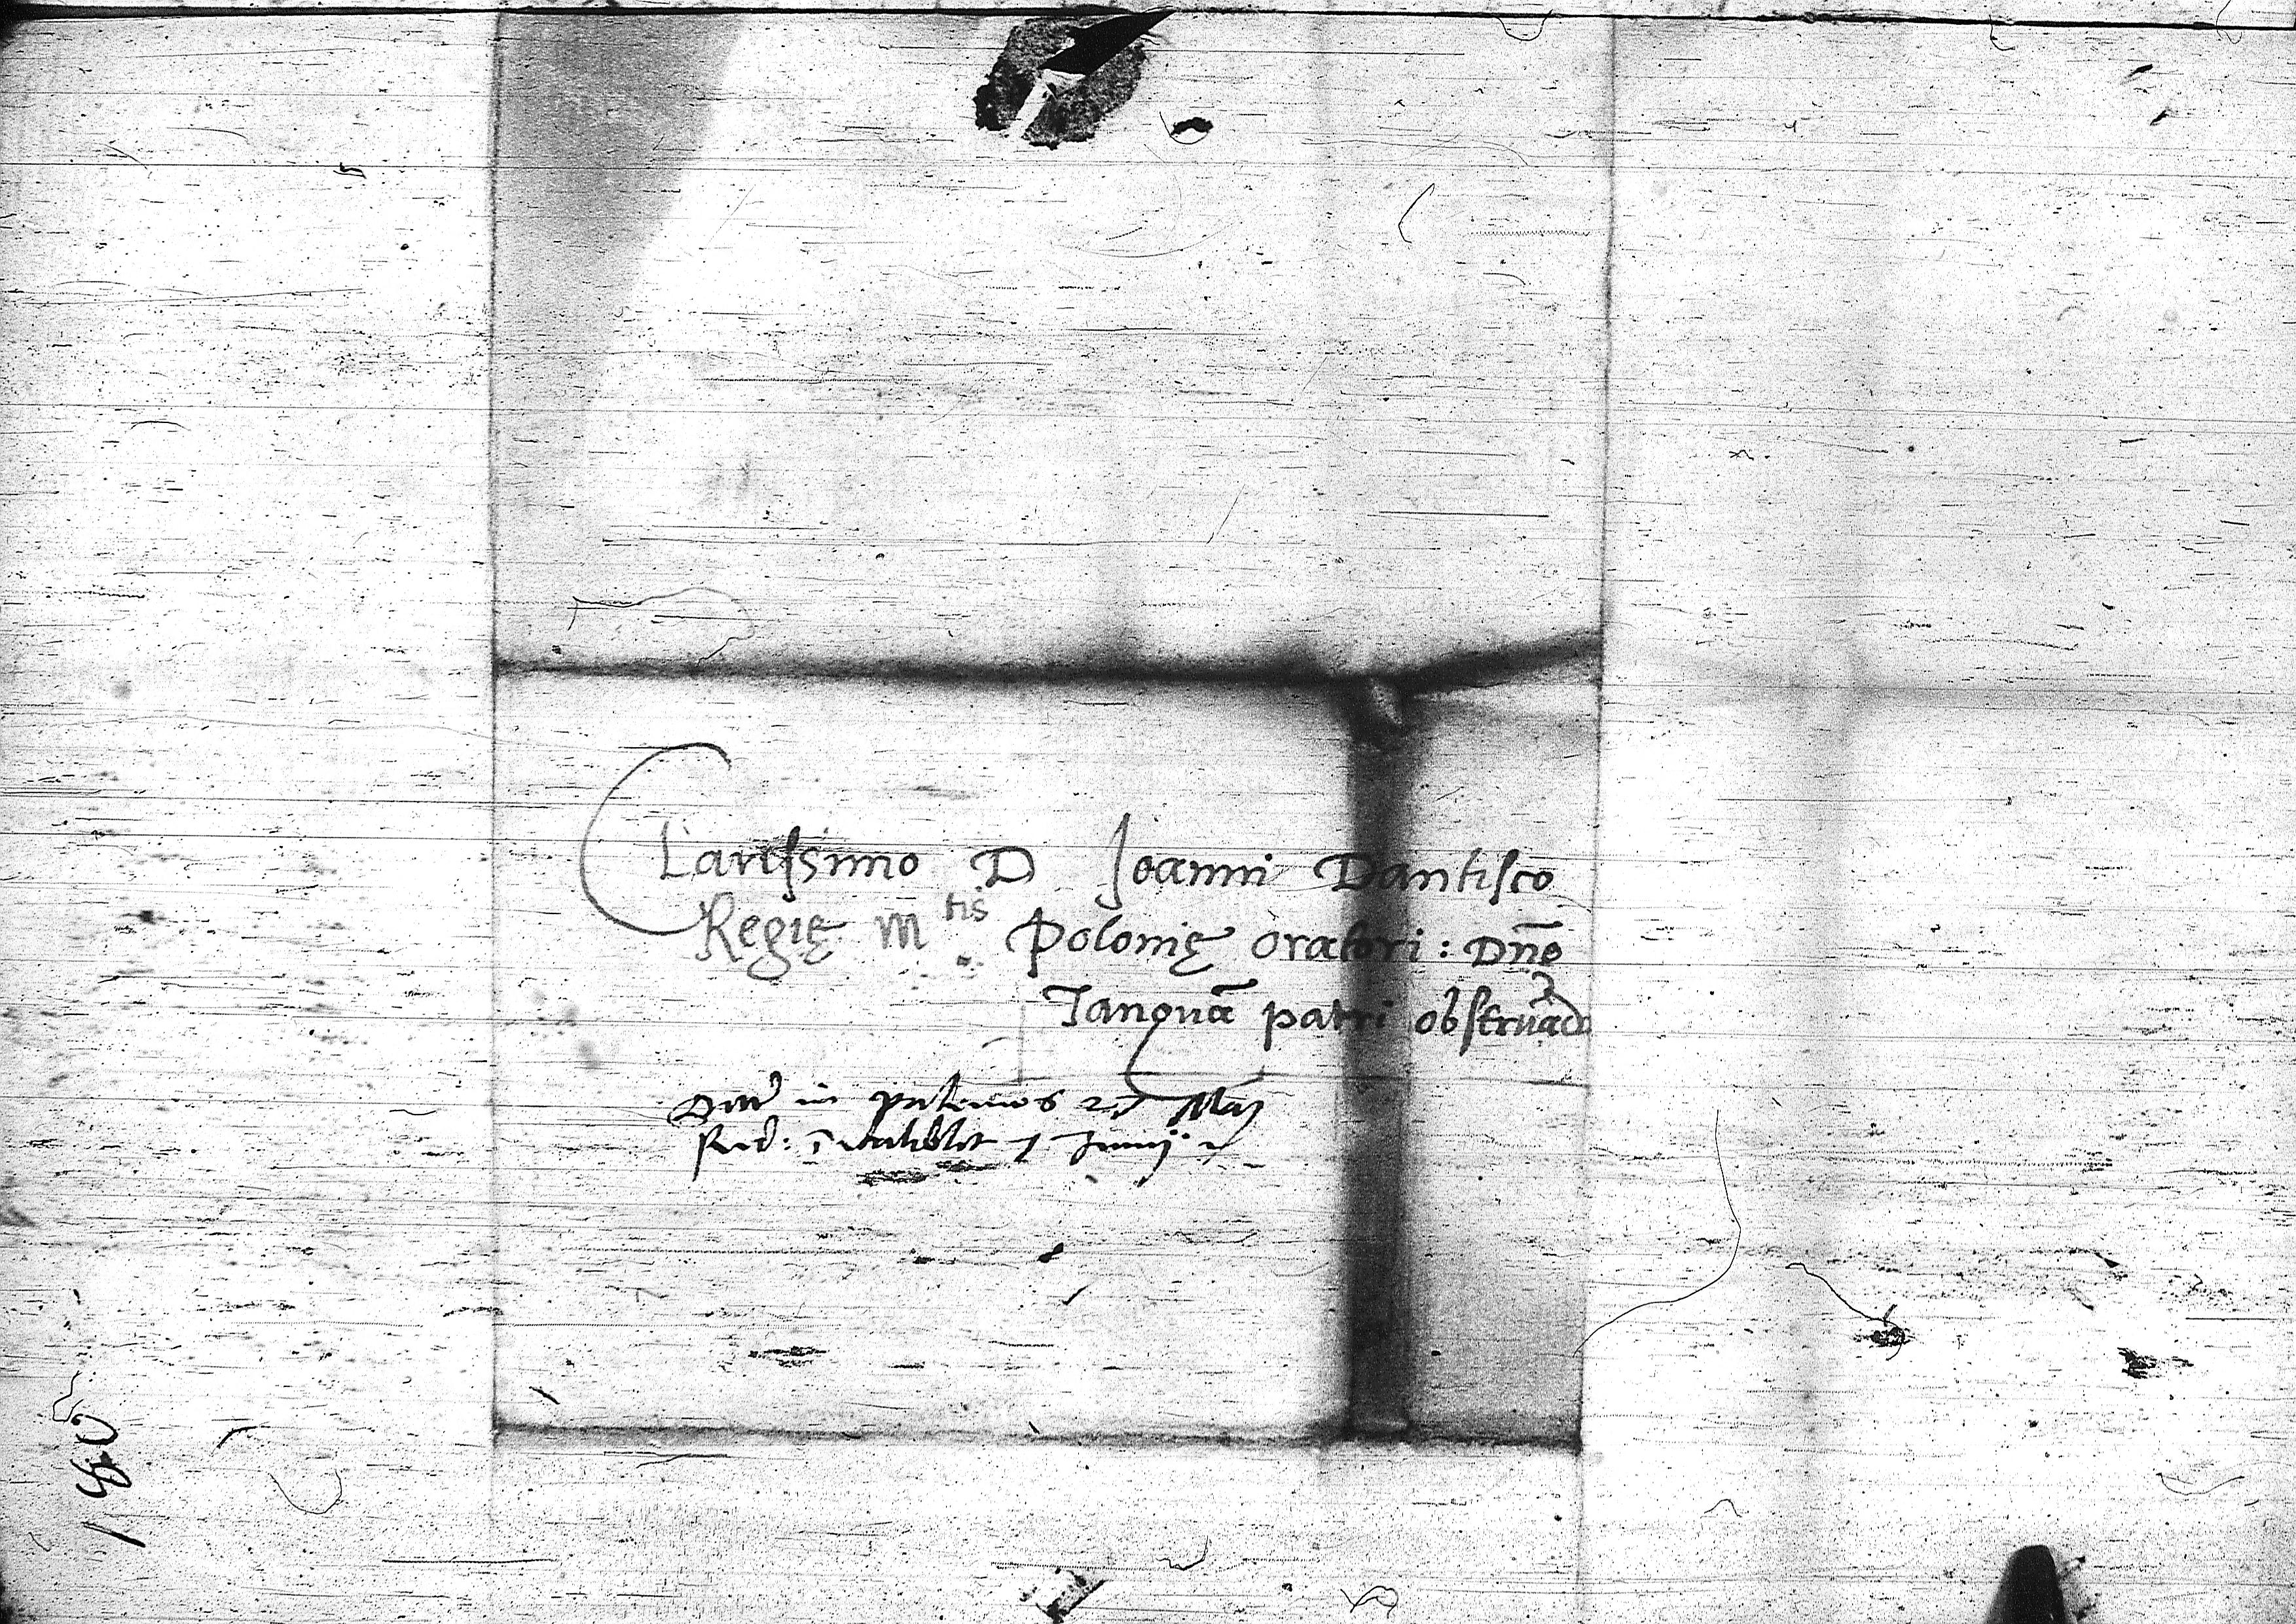 Clarissimo D Joanni Dantisco
Regię M^tis Polonię oratori: Dn̄o
Tanquā patri obseruādo
in 27 Maij
Red: Junij
180